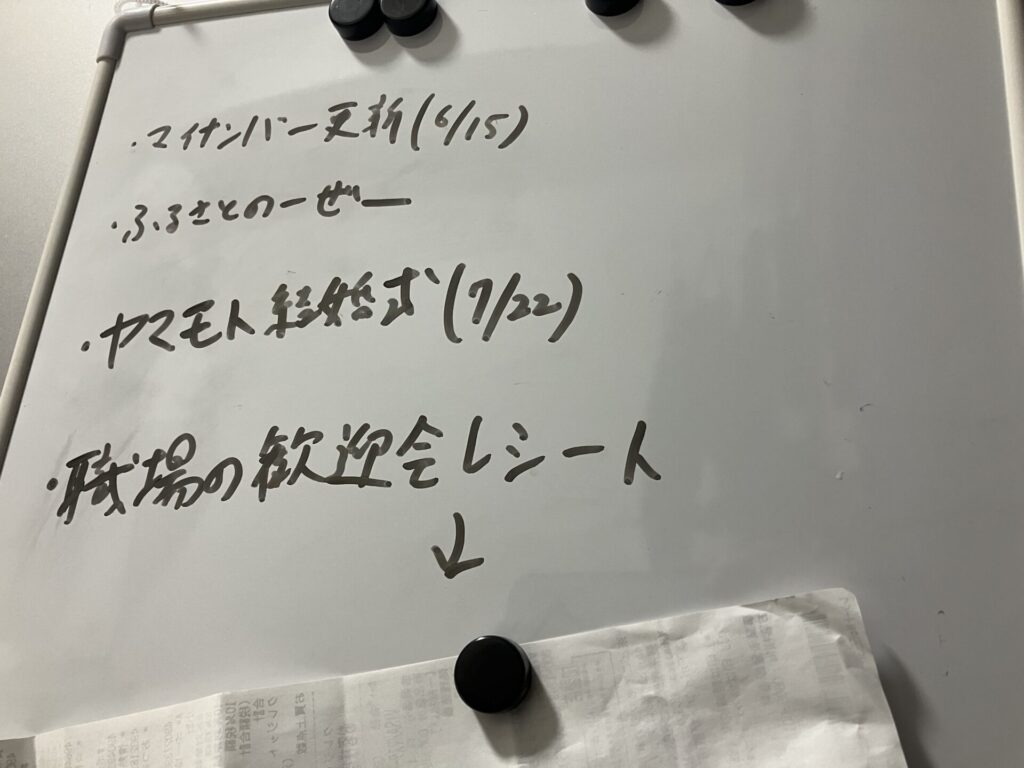 ・マイナンバー更新(6/15)
・ふるさとのーぜー
・ヤマモト結婚式(7/22)
・職場の歓迎会レシート
↓